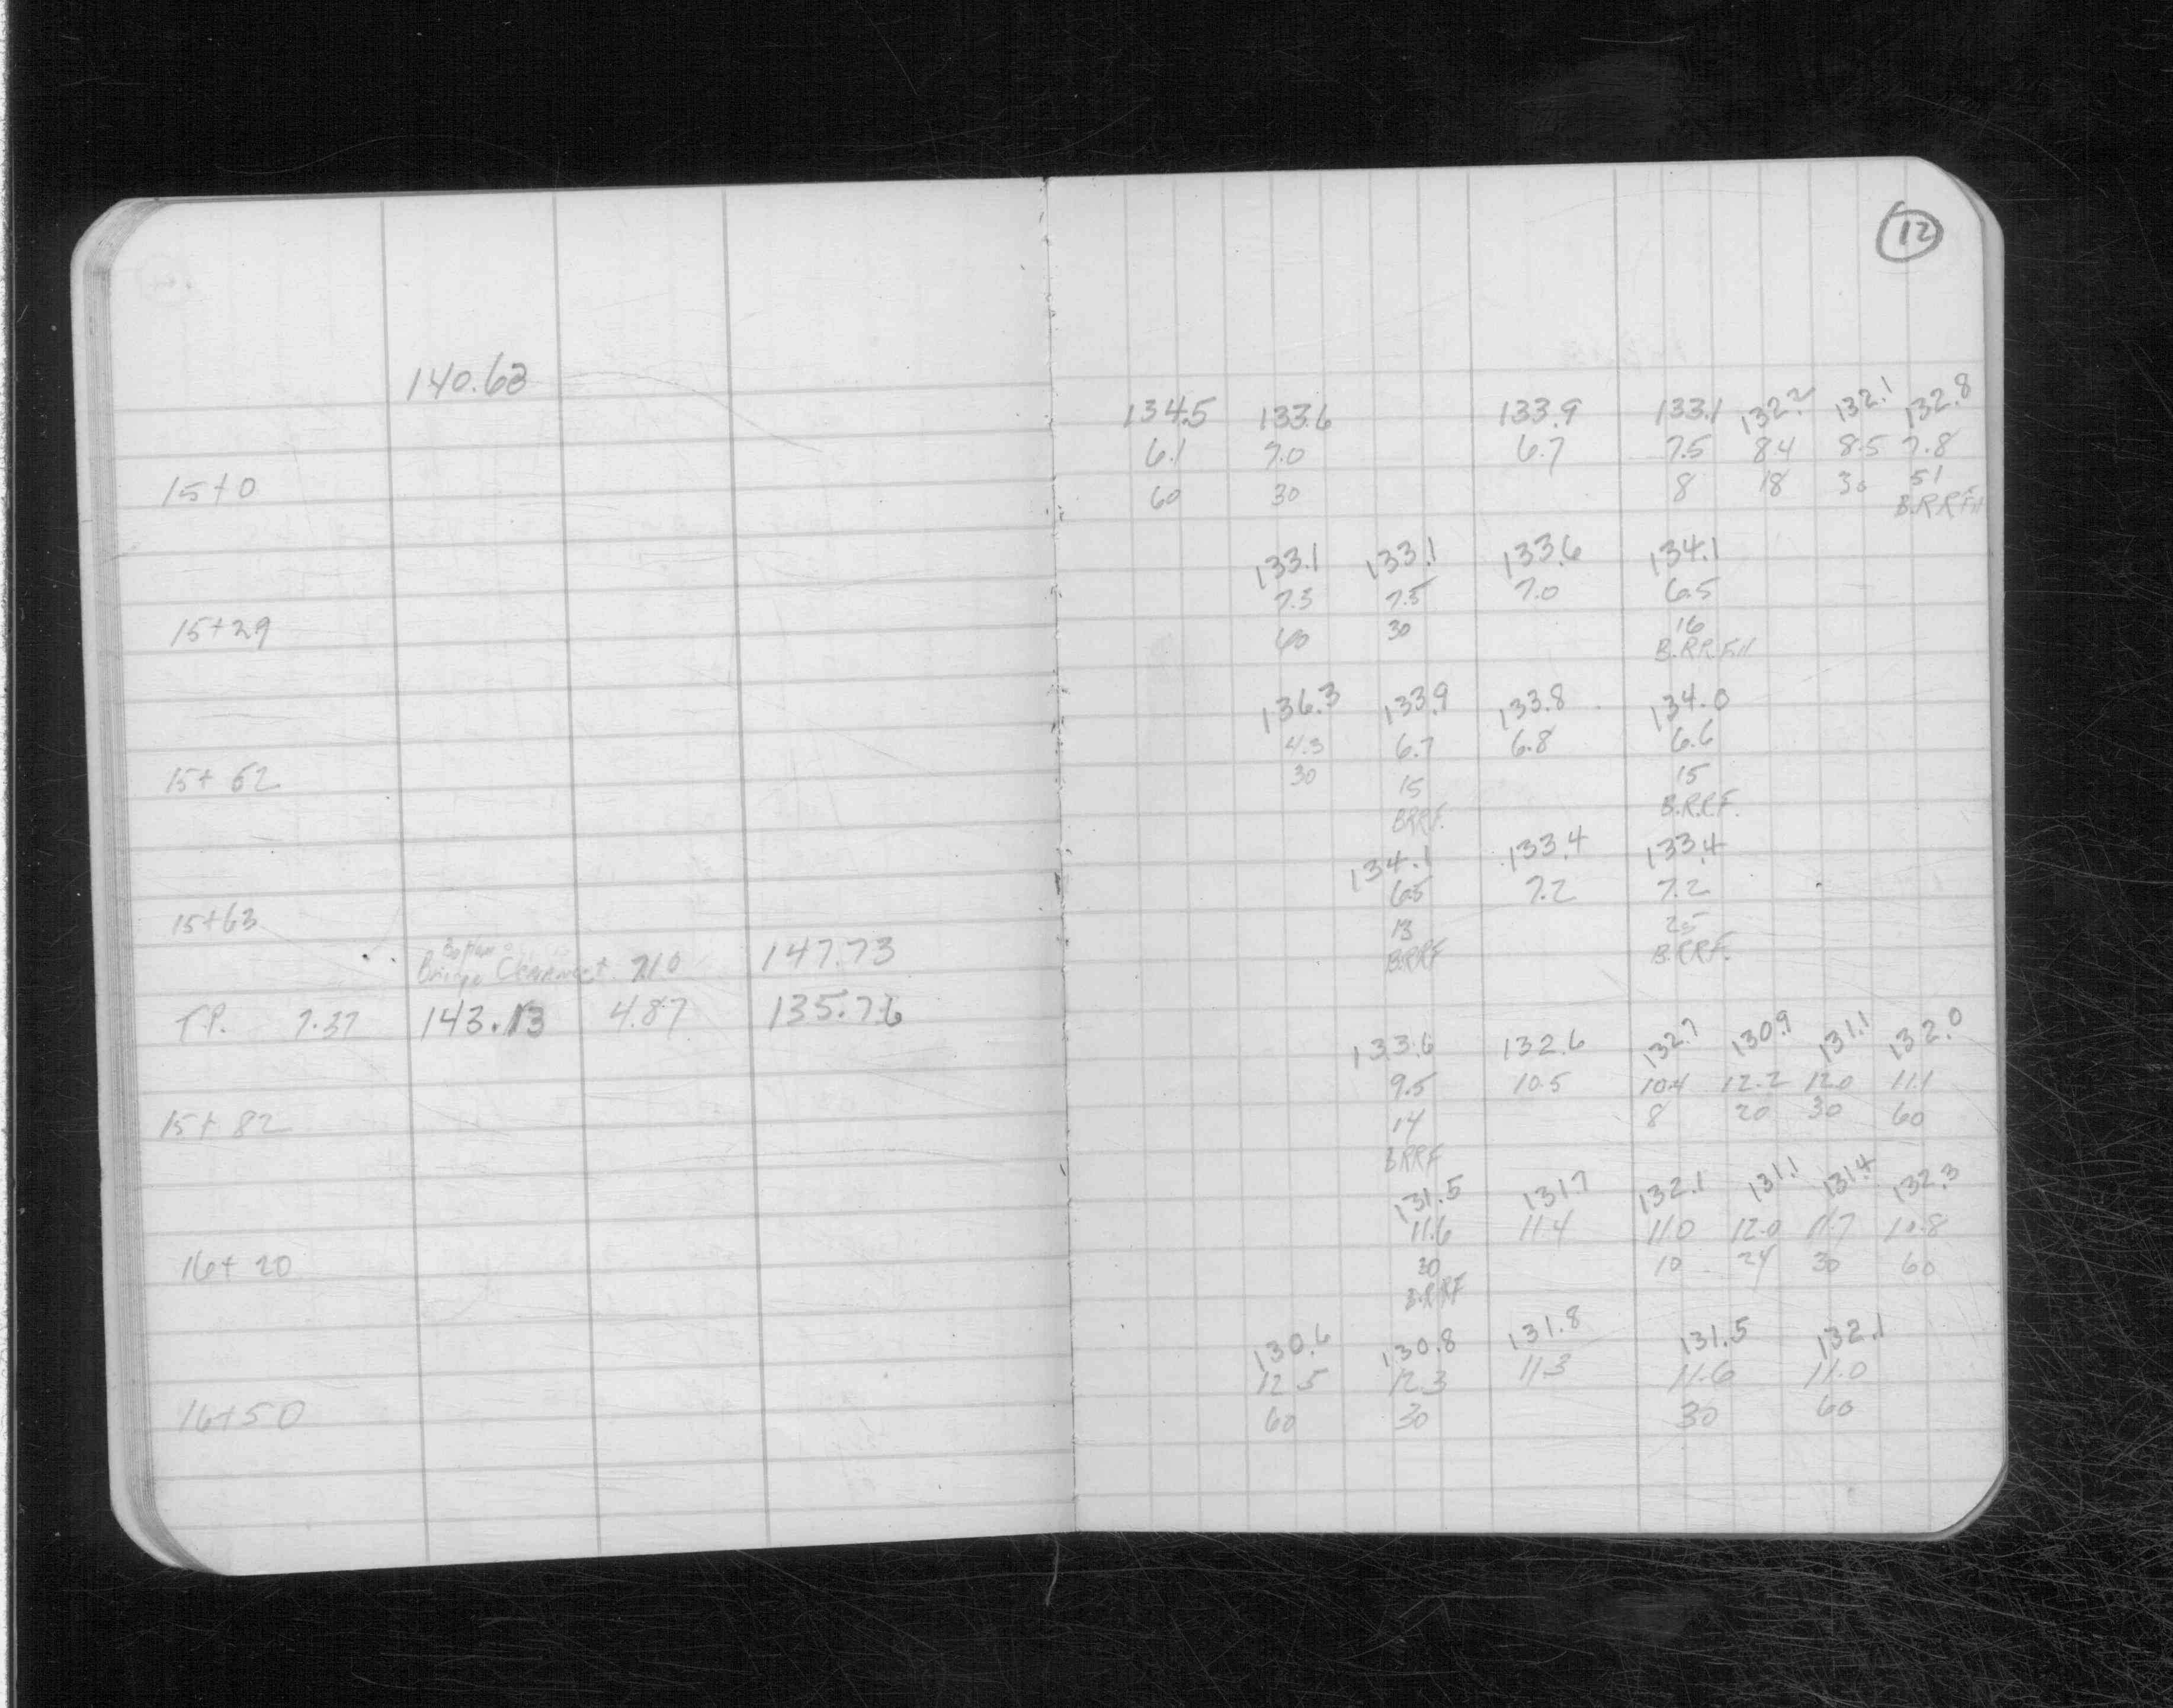 12
140.63
134.5 133.6 133.9 133.1 132.2 132.1 132.8
6.1 7.0 6.7 7.5 8.4 8.5 7.8
15+0 60 30 8 18 30 51
B.R.R.Fill
133.1 133.1 133.6 134.1
7.5 7.5 7.0 6.5
15+29 60 30 16
B.R.R.Fill
136.3 133.9 133.8 134.0
4.3 6.7 6.8 6.6
15+62 30 15 15
B.R.R.F. B.R.R.F.
134.1 133.4 133.4
6.5 7.2 7.2
15+63 13 25
Bottom
Bridge 7.10 147.73 B.R.R.F B.R.R.F.
T.P. 7.37 143.13 4.87 135.76
133.6 132.6 132.7 130.9 131.1 132.0
9.5 10.5 10.4 12.2 12.0 11.1
15+82 14 8 20 30 60
B.R.R.F
131.5 131.7 132.1 131.1 131.4 132.3
11.6 11.4 11.0 12.0 11.7 10.8
16+20 30 10 24 30 60
B.R.R.F
130.6 130.8 131.8 131.5 132.1
12.5 12.3 11.3 11.6 11.0
16+50 60 30 30 60